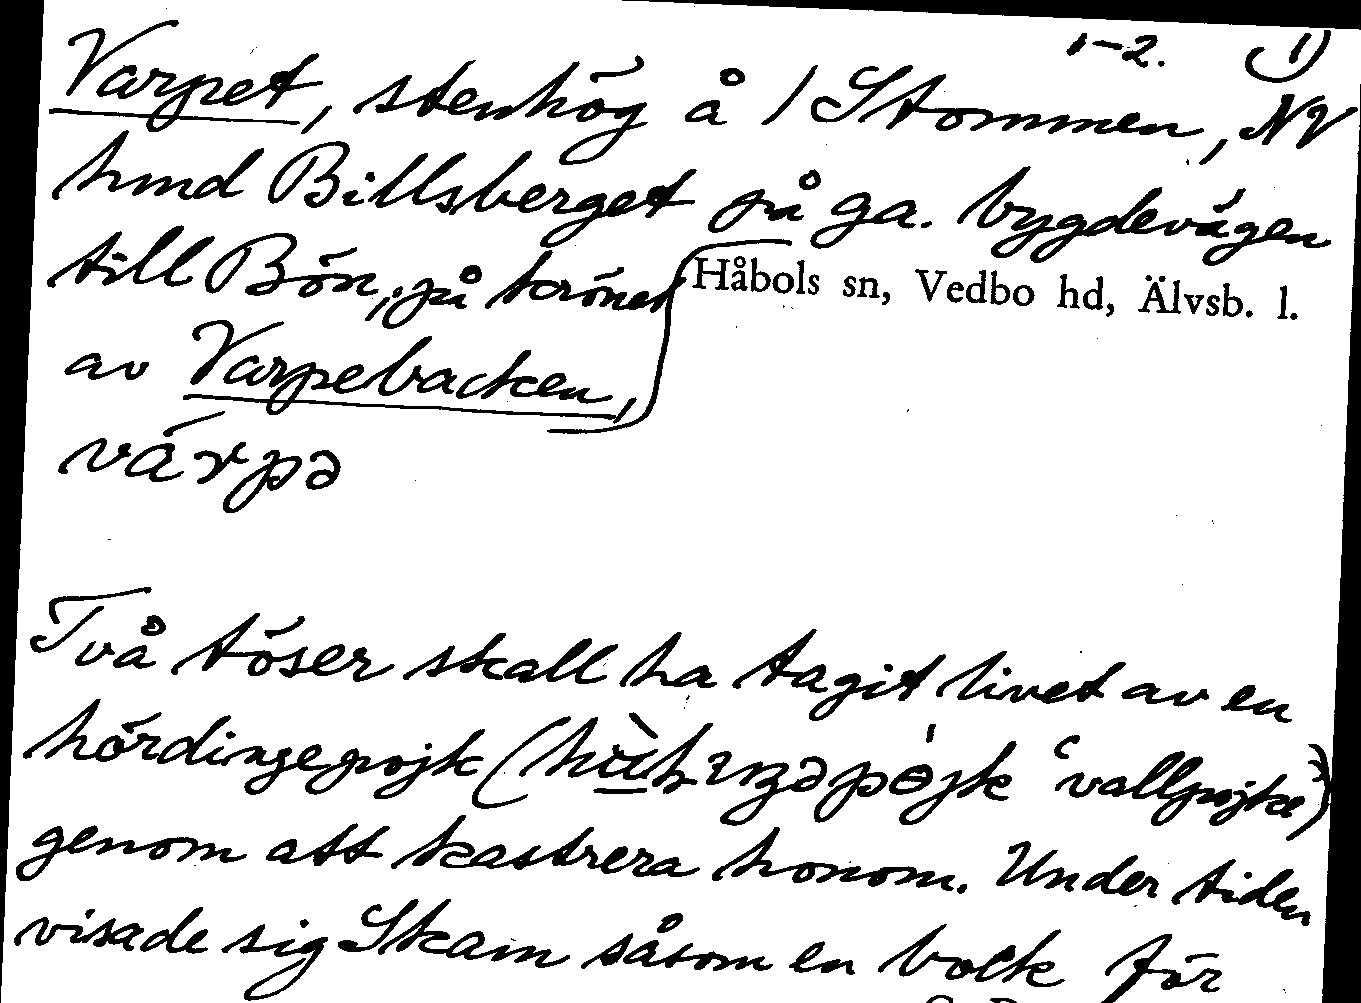 1–2. 1)
Varpet, stenhög å 1 Stommen, NV
hmd Billsberget på ga. bygdevägen
till Bön, på krönet
Håbols sn, Vedbo hd, Älvsb. l.
av Varpebacken,
várpə
Två töser skall ha tagit livet av en
hördingepojk ( ‘vallpojke’)
genom att kastrera honom. Under tiden
visade sig Skam såsom en bock för